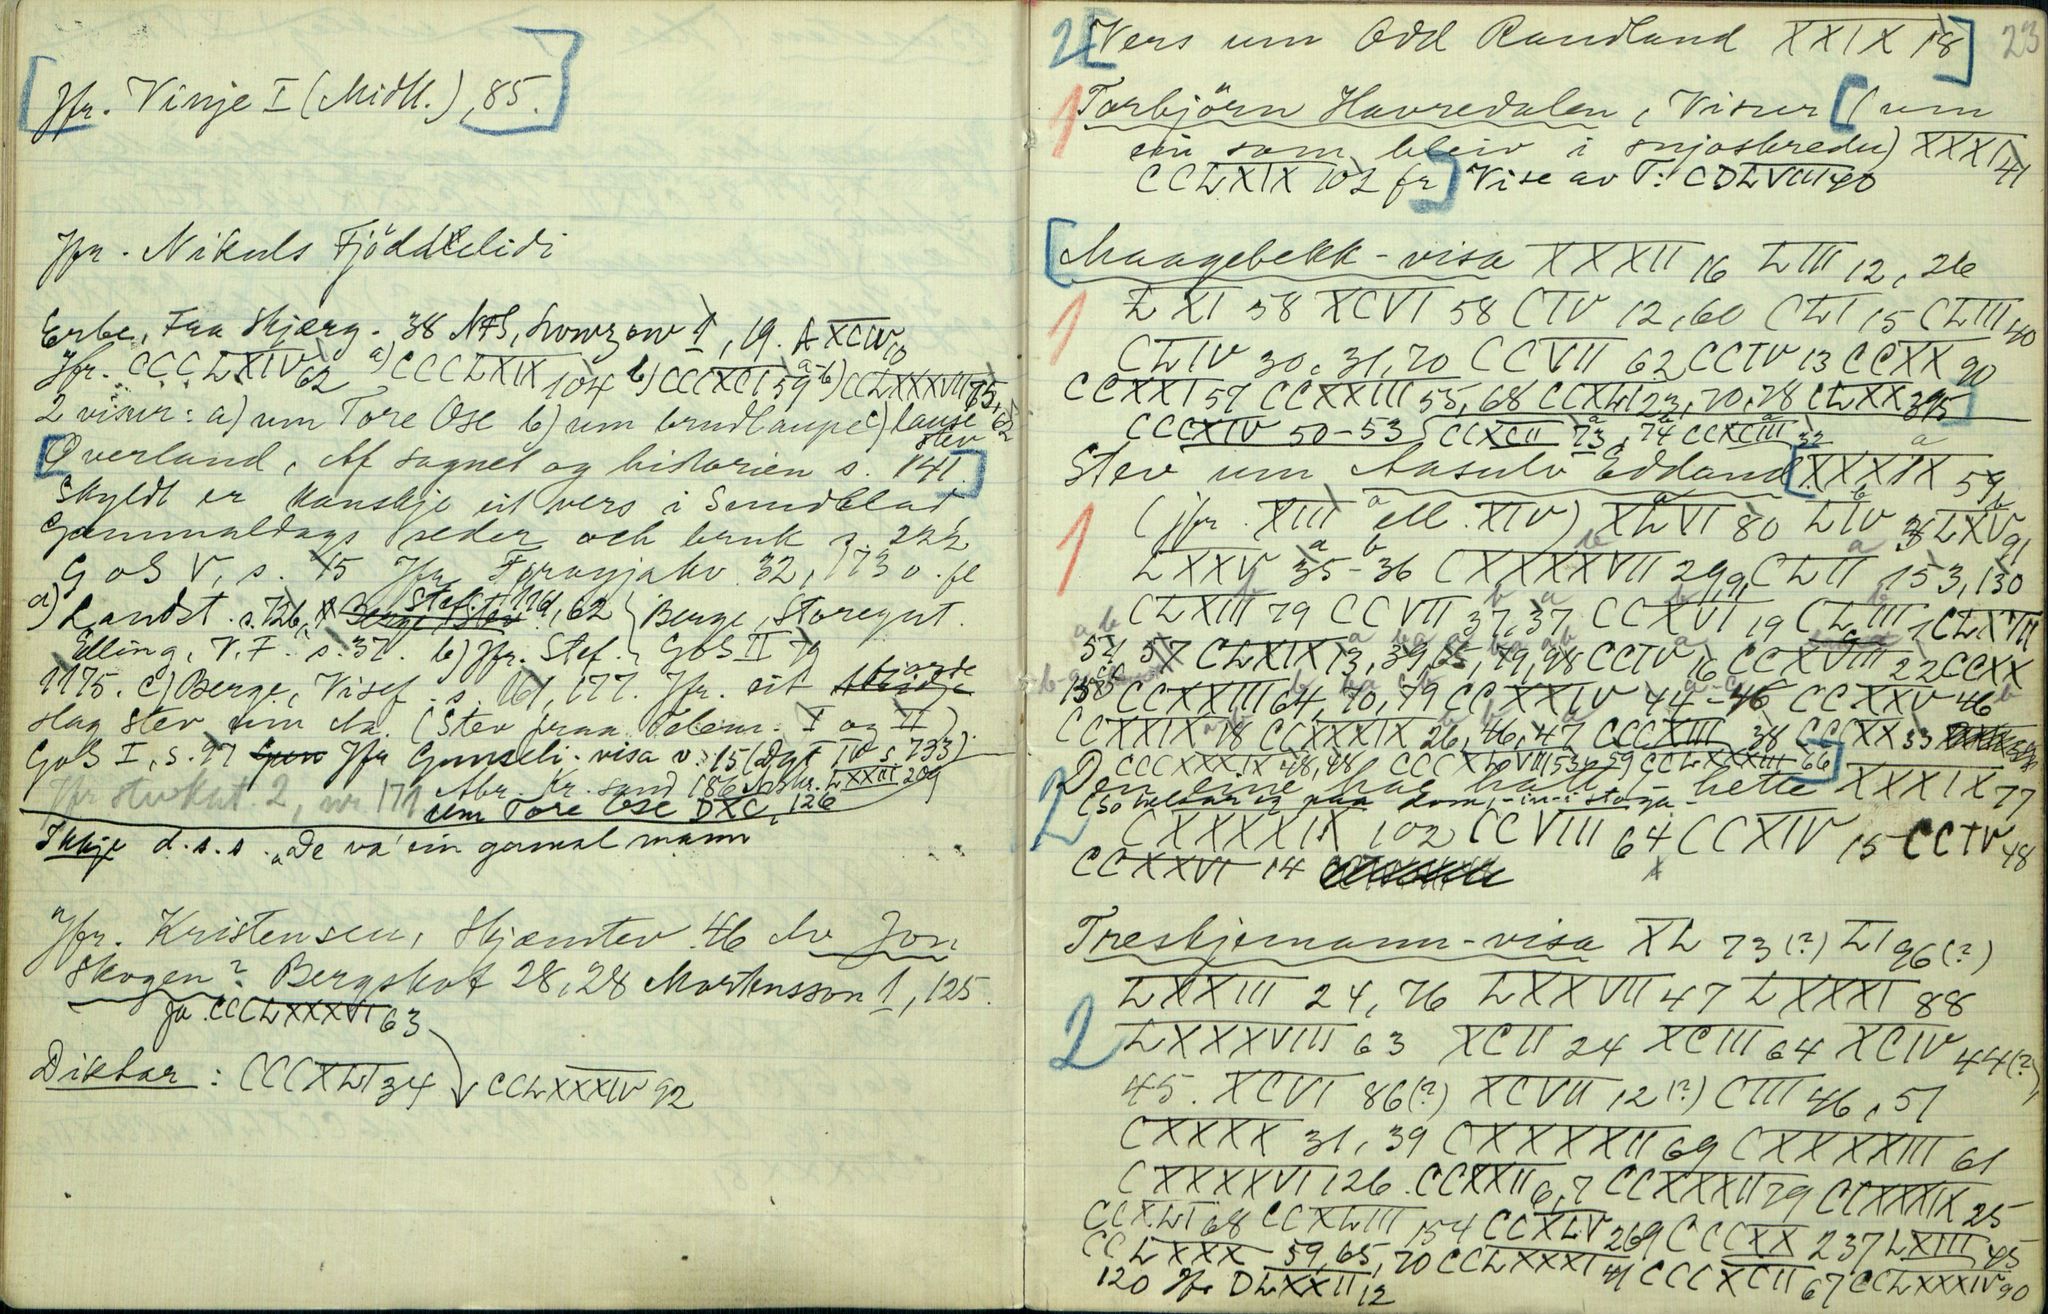 [Jfr. Vinje I (Midtt.), 85.]
Jfr. Nikuls Fjöddelidi
Erbe, Fra Skjærg. 38 NFS, 1, 19. A XCIV 10
Jfr. CCCLXIV 62 a) CCCLXIX 104 b) CCCXCI 59 a-b) CCLXXXVII 75, 62
2 visur: a) um Tore Ose b) um brudlaupe c) lause stev
[Överland, Af sagnet og historien s. 141.]
Skyldt er kanskje eit vers i Sundblad
Gammaldags seder och bruk s. 222
GoS V, s. 15 Jfr. 32, 173 o. fl
a) Landst. s. 726, Stef. 62 } Berge, Storegut.
Elling, V.F. s. 37. b) Jfr. Stef. GoS II 79
1175. c) Berge, Visef. s. 161, 177. Jfr. eit
slag stev um da. (Stev fraa Telem. I og II).
GoS I, s. 97 Jfr Gunseli-visa v. 15 (Dgt IV s 733)
Jfr stevkat. 2, nr. 171 LXXIII 209
um Tore Ose DXC, 126
Ikkje d.s.s. "De va' ein gamal mann
Jfr. Kristensen, Skjæmtev. 46 Av Jon
Skogen? Bergskot 28, 28 Mortensson 1, 125.
Ja CCCLXXXVI 63
Diktar: CCCXLI 34 CCLXXXIV 92
2 [Vers um Odd Randland XXIX 18] 23
1 Torbjörn Havredalen, Visur [(um
ein som bleiv i snjoskredu) XXXI 41
CCLXIX 102 fr] Vise av T: CDLVIII 40
[Maagebekk-visa XXXII 16 LIII 12, 26
1 LXI 38 XCVI 58 CIV 12, 60 CLI 15 CLIII 40
CLIV 30, 31, 70 CCVII 62 CCIV 13 CCXX 90
CCXXI 57 CCXXIII 55, 68 CCXLI 23, 70, 78 CLXX 395]
CCCXIV 50-53 CCXCII 73, 74 CCXCIII 32
Stev um Aasulv Eddand [XXXIX 59
1 (jfr. XIII a ell. XIV) XLVI 80 LIV 36 LXV 91
LXXV 35-36 CXXXXVII 29, 9, CLII 153, 130
CLXIII 79 CCVII 37, 37 CCXVI 19 CLIII 7 CLXVII
57 CLXIX 13, 39, 65, 79, 98 CCIV 16 CCXVIII 22 CCXX
CCXXIII 64, 70, 79 CCXXIV 44-46 CCXXV 46
CCXXIX 18 CCXXXIX 26, 46, 47 CCCXIII 38 CCCXX 33
CCCXXXIX 48, 48 CCCXLVIII 53, 59 CCLXXXIII 66]
2 Den eine han hatt - hette XXXIX 77
(so heldar eg paa dom, - in-i stoga -
CXXXXIX 102 CCVIII 64 CCXIV 15 CCIV 48
CCXXVI 14
Treskjemann-visa XL 73 (?) LI 96 (?)
LXXIII 24, 76 LXXVII 47 LXXXI 88
2 LXXXVIII 63 XCII 24 XCIII 64 XCIV 44 (?),
45. XCVI 86 (?) XCVII 12 (?) CIII 46, 51
CXXXX 31, 39 CXXXXII 69 CXXXXIII 61
CXXXXVI 126. CCXXII 6, 7 CCXXXII 79 CCXXXIX 25
CCXLI 68 CCXLIII 154 CCXLV 269 CCCXX 237 LXIII 45
CCLXXX 59, 65, 70 CCLXXXI 41 CCCXCII 67 CCLXXXIV 90
120 Jfr DLXXII 12